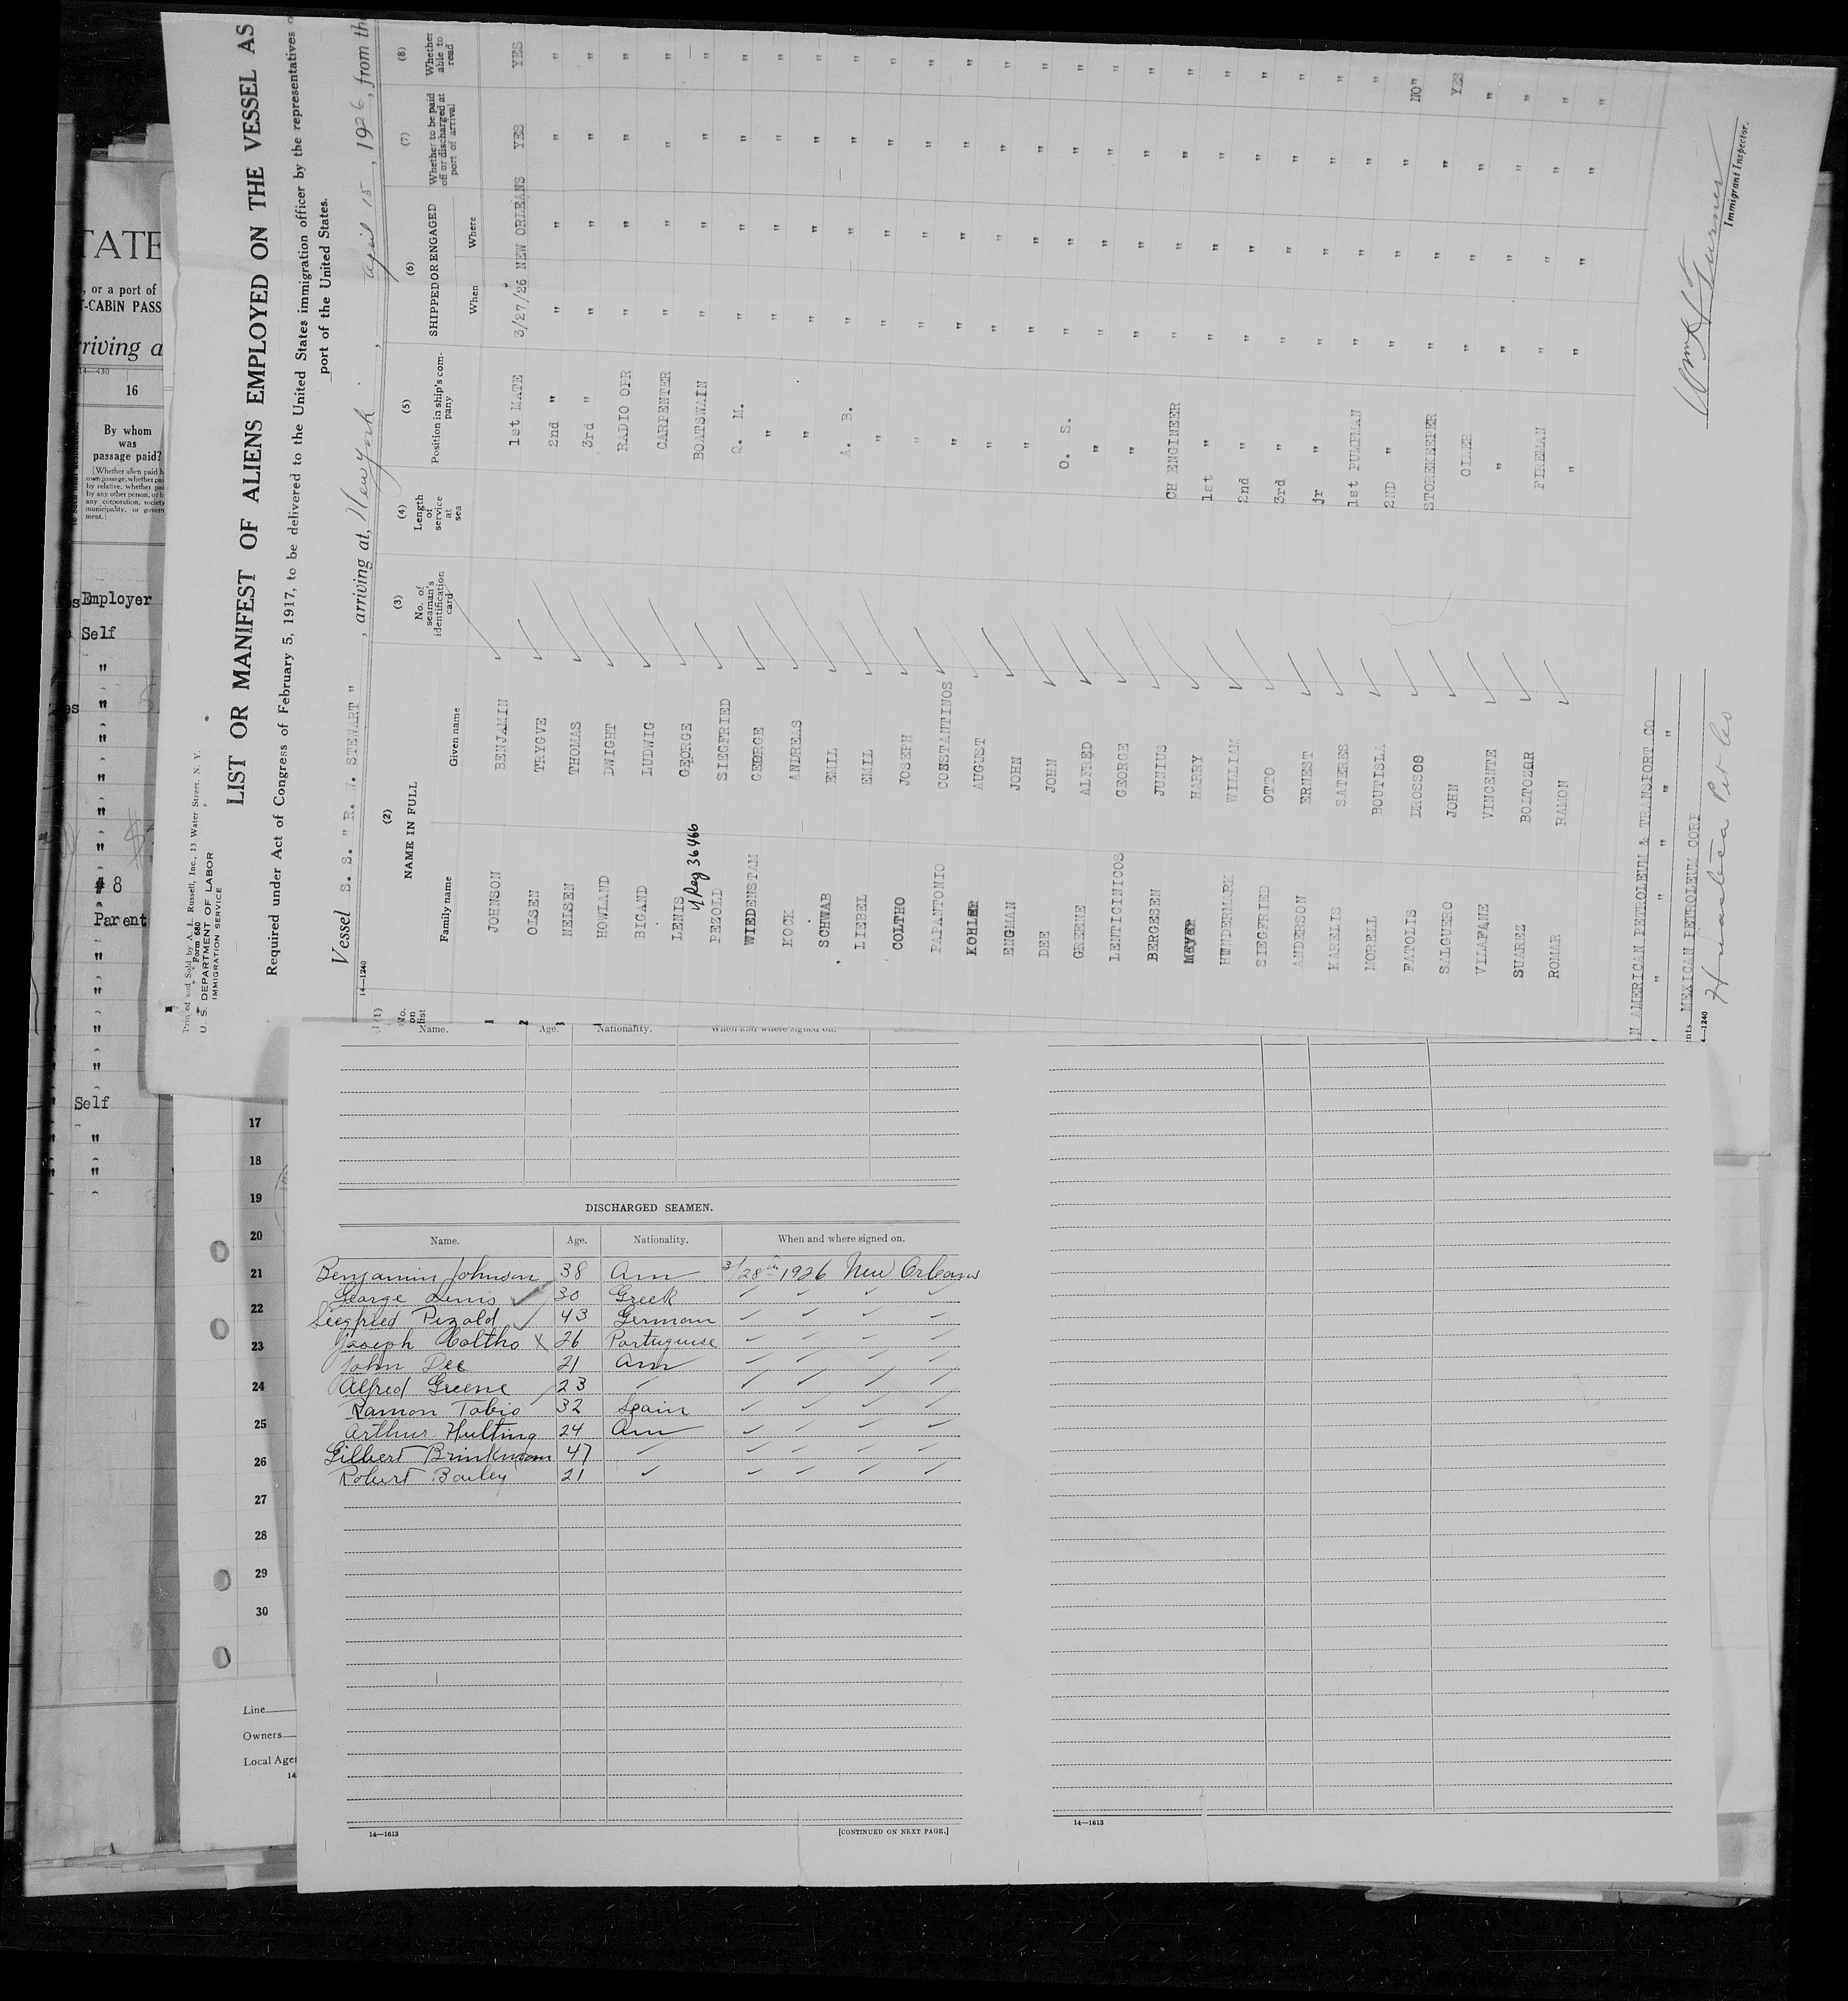 Printed and Sold by A. L. Russell, Inc., 13 Water Street, N. Y.
Form 680
U. S. DEPARTMENT OF LABOR
IMMIGRATION SERVICE
LIST OR MANIFEST OF ALIENS EMPLOYED ON THE VESSEL AS
Required under Act of Congress of February 5, 1917, to be delivered to the United States immigration officer by the representatives
port of the United States.
Vessel S. S. " R. W. STEWART " , arriving at, New York , April 15 , 1926, from th
14—1240
(1) (2) (3) (4) (5) (6) (7) (8)
No. on list NAME IN FULL No. of seaman's identification card Length of service at sea Position in ship's company SHIPPED OR ENGAGED Whether to be paid off or discharged at port of arrival Whether able to read
Family name Given name When Where
1 JOHNSON BENJAMIN 1st MATE 3/27/26 NEW ORLEANS YES YES
2 OLSEN TRYGVE 2nd " " " " "
3 NELSEN THOMAS 3rd " " " " "
HOWLAND DWIGHT RADIO OPR " " " "
BIGAND LUDWIG CARPENTER " " " "
LENIS GEORGE BOATSWAIN " " " "
36466
PEZOLD SIEGFRIED Q. M. " " " "
WIEDENSTAM GEORGE " " " " "
KOCK ANDREAS " " " " "
SCHWAB EMIL A. B. " " " "
LIEBEL EMIL " " " " "
COLTHO JOSEPH " " " " "
PAPANTONIO CONSTANTINOS " " " " "
KOHLER AUGUST " " " " "
ENGMAN JOHN " " " " "
DEE JOHN O. S. " " " "
GREENE ALFRED " " " " "
LENTICINICOS GEORGE " " " " "
BERGESEN JUNIUS CH ENGINEER " " " "
MEYER HARRY 1st " " " " "
HUNDERMARK WILLIAM 2nd " " " " "
SIEGFRIED OTTO 3rd " " " " "
ANDERSON ERNEST jr " " " " "
KARELIS SATERES 1st PUMPMAN " " " "
MORELL BOUTISLA 2ND " " " " "
FATOLIS DROSSOS STOREKEEPER " " " NO"
SALGUERO JOHN OILER " " " YES
VILAFANE VINCENTE " " " " "
SUAREZ BOLTOZAR FIREMAN " " " "
ROMAR RAMON " " " " "
N AMERICAN PETROLEUM & TRANSPORT CO
" " " " "
nts MEXICAN PETROLEUM CORP
—1240
Huasteca Pet Co
Wm H Turner
Immigrant Inspector.
TATE
, or a port of
T-CABIN PASS
rriving a
14—430
16
By whom
was
passage paid?
(Whether alien paid h
own passage, whether pai
by relative, whether pai
by any other person, or b
any corporation, society
municipality, or govern
ment.)
Employer
Self
"
"
"
"
"
"
# 8
Parent
"
"
"
"
"
Self
"
"
17
18
19
20
21
22
23
24
25
26
27
28
29
30
Line
Owners
Local Agen
14
Name. Age. Nationality. When and where signed on.
DISCHARGED SEAMEN.
Name. Age. Nationality. When and where signed on.
Benjamin Johnson 38 Am 3/28th 1926 New Orleans
George Lenis 30 Greek
Siegfried Pezold 43 German
Joseph Coltho X 26 Portuguese
John Dee 21 Am
Alfred Greene 23
Ramon Tobio 32 Spain
Arthur Hulting 24 Am
Gilbert Brinkman 47
Robert Bailey 21
14—1613 [CONTINUED ON NEXT PAGE.]
14—1613